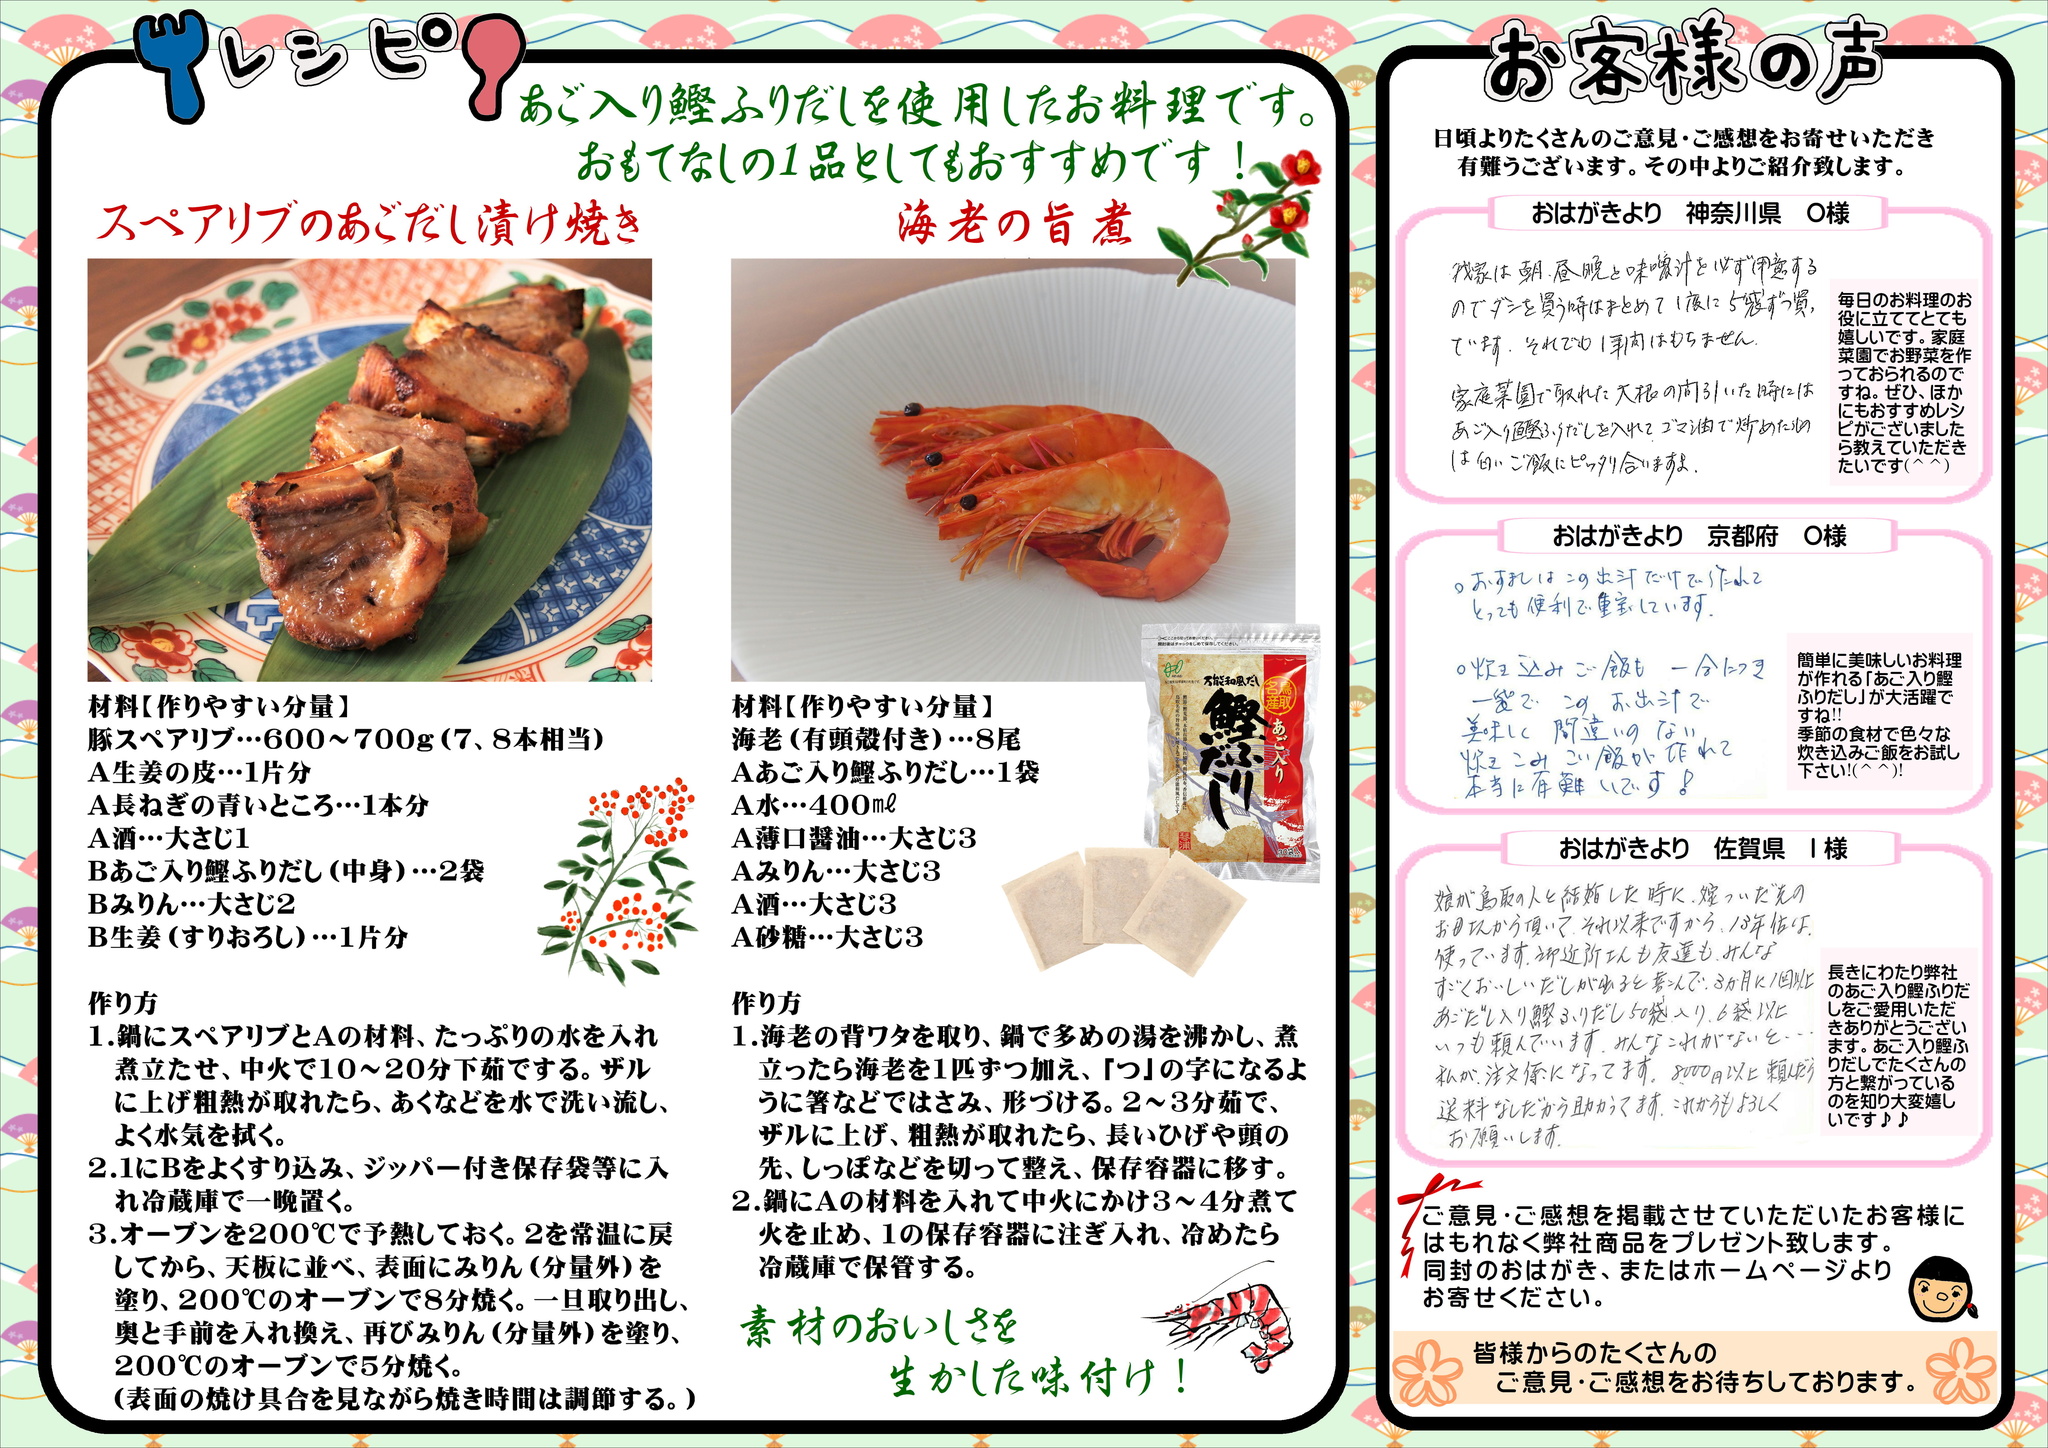 レシピ
あご入り鰹ふりだしを使用したお料理です。
おもてなしの1品としてもおすすめです！
スペアリブのあごだし漬け焼き
材料【作りやすい分量】
豚スペアリブ…600～700g（7、8本相当）
A生姜の皮…1片分
A長ねぎの青いところ…1本分
A酒…大さじ1
Bあご入り鰹ふりだし（中身）…2袋
Bみりん…大さじ2
B生姜（すりおろし）…1片分
作り方
1.鍋にスペアリブとAの材料、たっぷりの水を入れ
煮立たせ、中火で10～20分下茹でする。ザル
に上げ粗熱が取れたら、あくなどを水で洗い流し、
よく水気を拭く。
2.1にBをよくすり込み、ジッパー付き保存袋等に入
れ冷蔵庫で一晩置く。
3.オーブンを200℃で予熱しておく。2を常温に戻
してから、天板に並べ、表面にみりん（分量外）を
塗り、200℃のオーブンで8分焼く。一旦取り出し、
奥と手前を入れ換え、再びみりん（分量外）を塗り、
200℃のオーブンで5分焼く。
（表面の焼け具合を見ながら焼き時間は調節する。）
海老の旨煮
材料【作りやすい分量】
海老（有頭殻付き）…8尾
Aあご入り鰹ふりだし…1袋
A水…400㎖
A薄口醤油…大さじ3
Aみりん…大さじ3
A酒…大さじ3
A砂糖…大さじ3
万能和風だし
鳥取名産
あご入り
鰹ふりだし
作り方
1.海老の背ワタを取り、鍋で多めの湯を沸かし、煮
立ったら海老を1匹ずつ加え、「つ」の字になるよ
うに箸などではさみ、形づける。2～3分茹で、
ザルに上げ、粗熱が取れたら、長いひげや頭の
先、しっぽなどを切って整え、保存容器に移す。
2.鍋にAの材料を入れて中火にかけ3～4分煮て
火を止め、1の保存容器に注ぎ入れ、冷めたら
冷蔵庫で保管する。
素材のおいしさを
生かした味付け！
お客様の声
日頃よりたくさんのご意見・ご感想をお寄せいただき
有難うございます。その中よりご紹介致します。
おはがきより　神奈川県　O様
我家は朝、昼、晩と味噌汁を必ず用意する
のでダシを買う時はまとめて1度に5袋ずつ買っ
ています。それでも1年内はもちません。
家庭菜園で取れた大根の間引いた時には
あご入り鰹ふりだしを入れて ゴマ油で炒めたもの
は白いご飯にピッタリ合いますよ。
毎日のお料理のお
役に立ててとても
嬉しいです。家庭
菜園でお野菜を作
っておられるので
すね。ぜひ、ほか
にもおすすめレシ
ピがございました
ら教えていただき
たいです(＾＾)
おはがきより　京都府　O様
○おすましはこの出汁だけで作れて
とっても便利で重宝しています。
○炊き込みご飯も 一合につき
一袋で このお出汁で
美味しく 間違いのない
炊きこみご飯が作れて
本当に有難いです！
簡単に美味しいお料理
が作れる「あご入り鰹
ふりだし」が大活躍で
すね!!
季節の食材で色々な
炊き込みご飯をお試し
下さい!(＾＾)!
おはがきより　佐賀県　I様
娘が鳥取の人と結婚した時に、嫁ついだ先の
お母さんから頂いて、それ以来ですから、13年位は、
使っています。御近所さんも友達も、みんな
すごくおいしいだしが出ると喜んで、3か月に1回以上
あごだし入り鰹ふりだし50袋入り、6袋以上
いつも頼んでいます。みんなこれがないと…
私が、注文係になってます。8000円以上頼んだら
送料なしだから助かってます。これからもよろしく
お願いします。
長きにわたり弊社
のあご入り鰹ふりだ
しをご愛用いただ
きありがとうござい
ます。あご入り鰹ふ
りだしでたくさんの
方と繋がっている
のを知り大変嬉し
いです♪♪
ご意見・ご感想を掲載させていただいたお客様に
はもれなく弊社商品をプレゼント致します。
同封のおはがき、またはホームページより
お寄せください。
皆様からのたくさんの
ご意見・ご感想をお待ちしております。